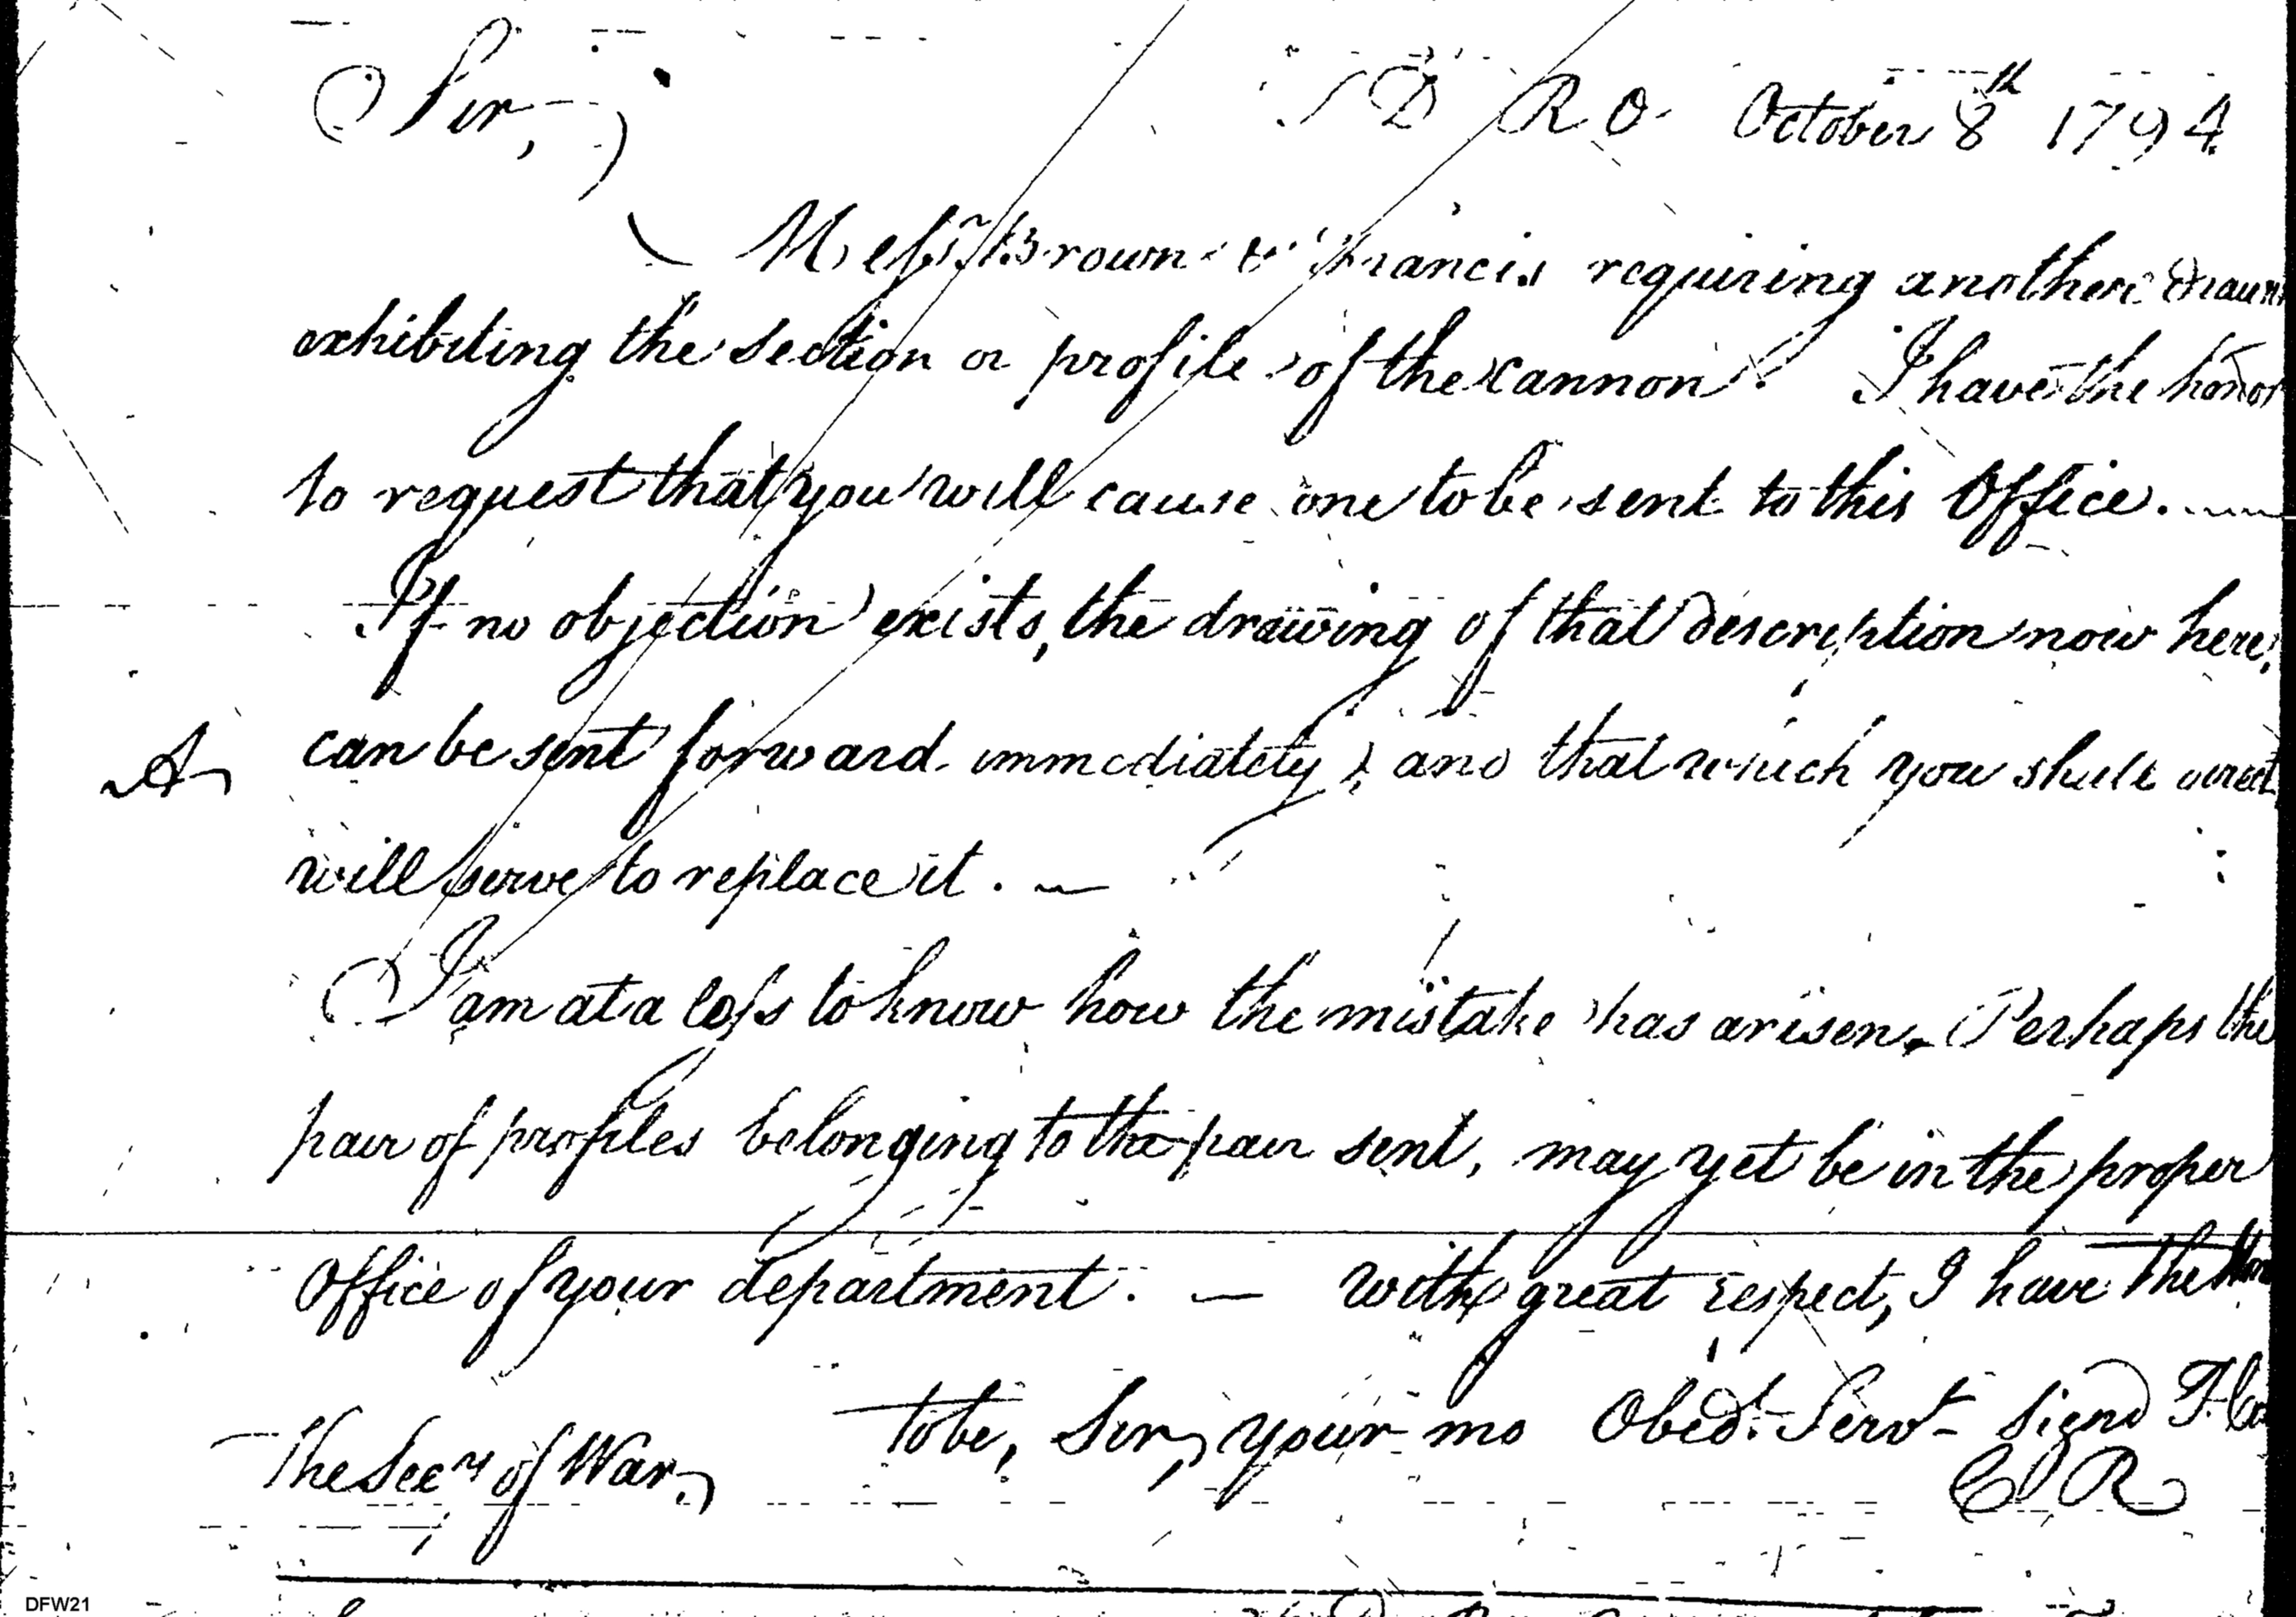 Sir, T D R O. October 8th 1794.
Messrs. Brown & Francis requiring another
exhibiting the section or profile of the cannon. I have the honor
to request that you will cause one to be sent to this Office.
If no objection exists, the drawing of that description now here,
can be sent forward immediately, and that which you shall direct
A
will serve to replace it. —
I am at a loss to know how the mistake has arisen. Perhaps the
pair of profiles belonging to the pair sent, may yet be in the proper
Office of your department. — with great respect, I have the
to be, Sir, your mo Obedt. Servt- Signd
The Secy of War. C R
DFW21